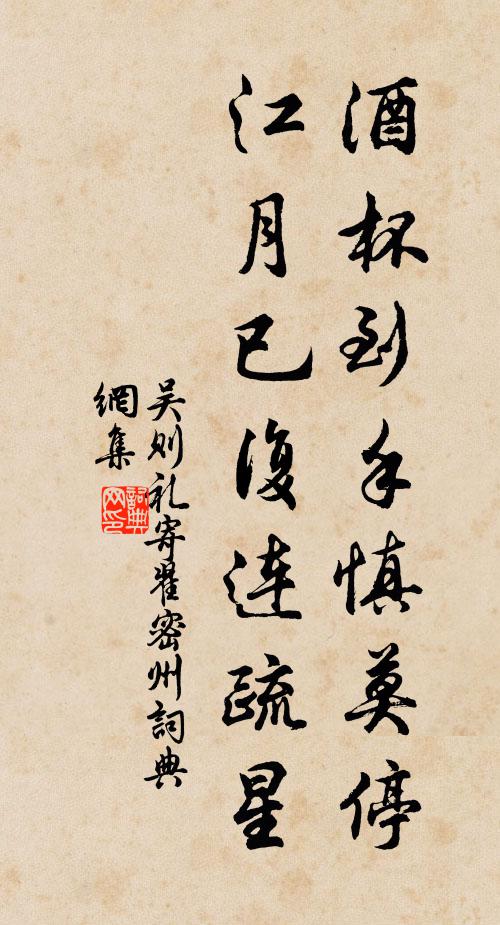 酒杯到手慎莫停
江月已復連疏星
吴则礼寄翟密州詞典
網集
詞典
网印